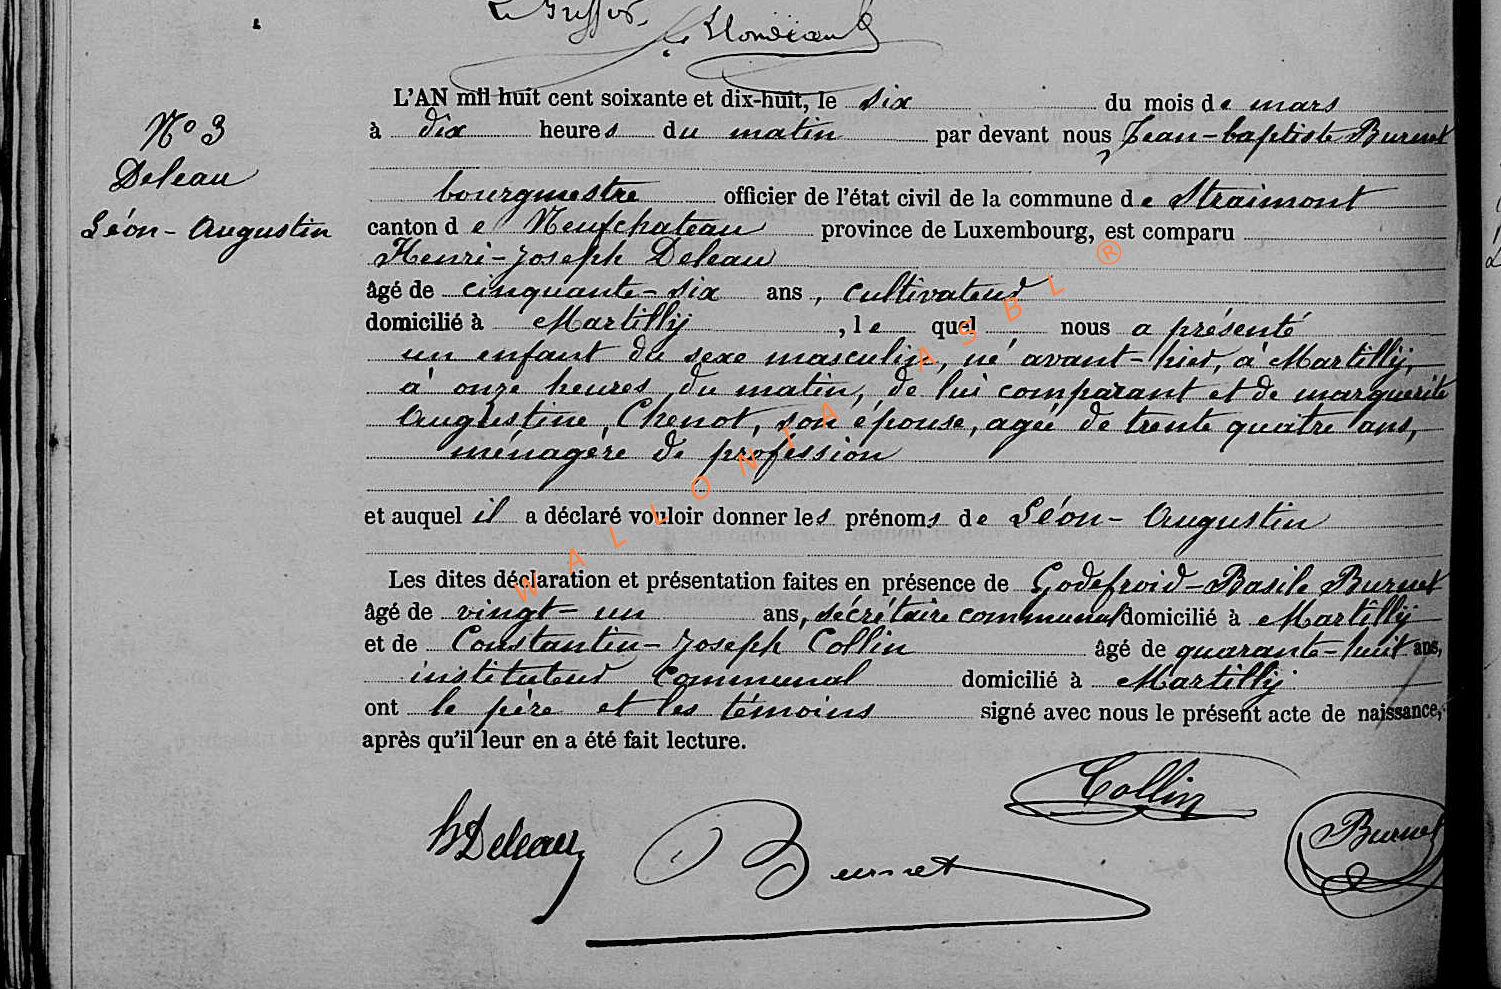 Le Greffier,
N° 3
Deleau
Léon-Augustin
L'AN mil huit cent soixante et dix-huit, le six du mois de mars
à dix heures du matin par devant nous Jean-baptiste Burnet
bourgmestre officier de l'état civil de la commune de Straimont
canton de Neufchateau province de Luxembourg, est comparu
Henri-Joseph Deleau
âgé de cinquante-six ans, cultivateur
domicilié à Martilly, lequel nous a présenté
un enfant du sexe masculin, né avant-hier, à Martilly,
à onze heures du matin, de lui comparant et de marguerite
Augustine, Chenot, son épouse, agée de trente quatre ans,
ménagère de profession
et auquel il a déclaré vouloir donner les prénoms de Léon-Augustin
Les dites déclaration et présentation faites en présence de Godefroid-Basile Burnet
âgé de vingt-un ans, sécrétaire communal domicilié à Martilly
et de Constantin-Joseph Collin âgé de quarante-huit ans,
instituteur communal domicilié à Martilly
ont le père et les témoins signé avec nous le présent acte de naissance,
après qu'il leur en a été fait lecture.
Collin
hDeleau
Burnet
Burnet
WALLONIA ASBL ®